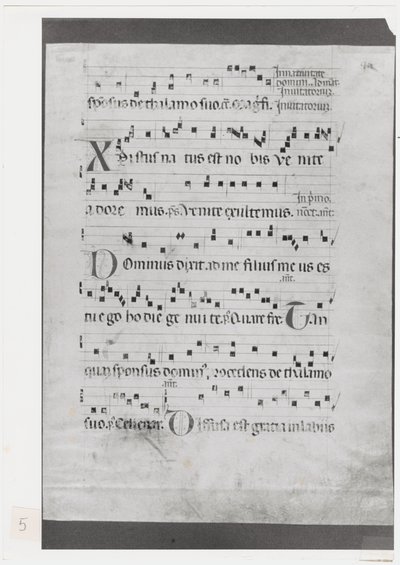 In nativitate
domini. ad mat.
Invitatorium.
sponsus de thalamo suo. Magnifi. Invitatorium.
Xpistus na tus est no bis Ve nite
a dore mus. ps. Venite exultemus. In primo
noct. ant.
Dominus dixit ad me filius me us es
ant.
tu e go ho die ge nui te. ps. Quare fre. Tan
quam sponsus domin, rocedens de thalamo
ant.
suo. ps. Celi enar. Diffusa est gratia in labiis
5